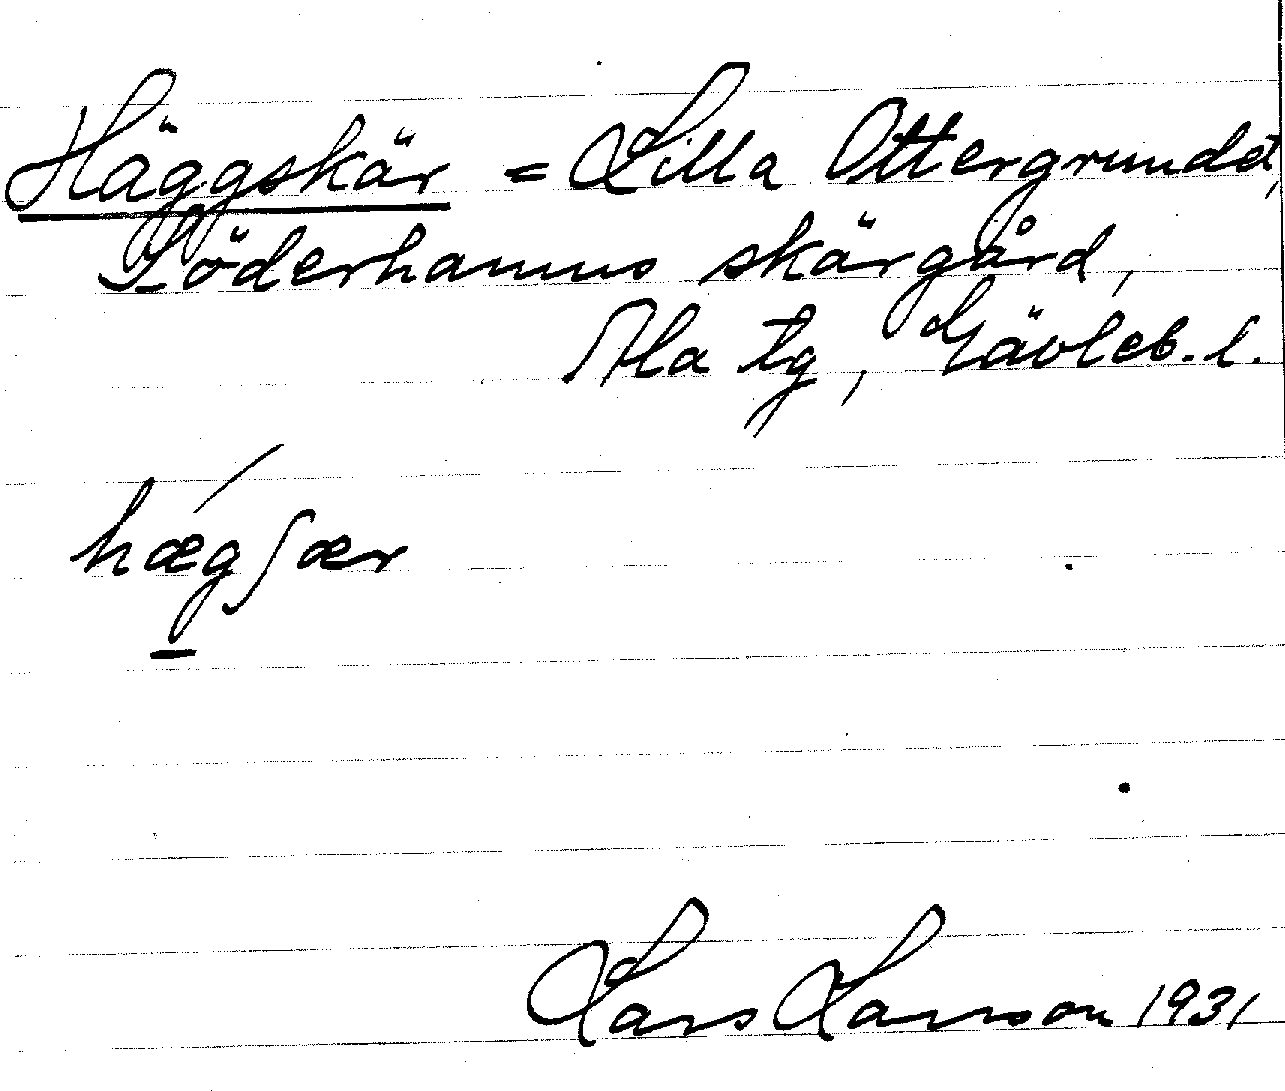 Häggskär = Lilla Ottergrundet,
Söderhamns skärgård,
Ala tg, Gävleb. l.
hægʃær
Lars Larsson 1931